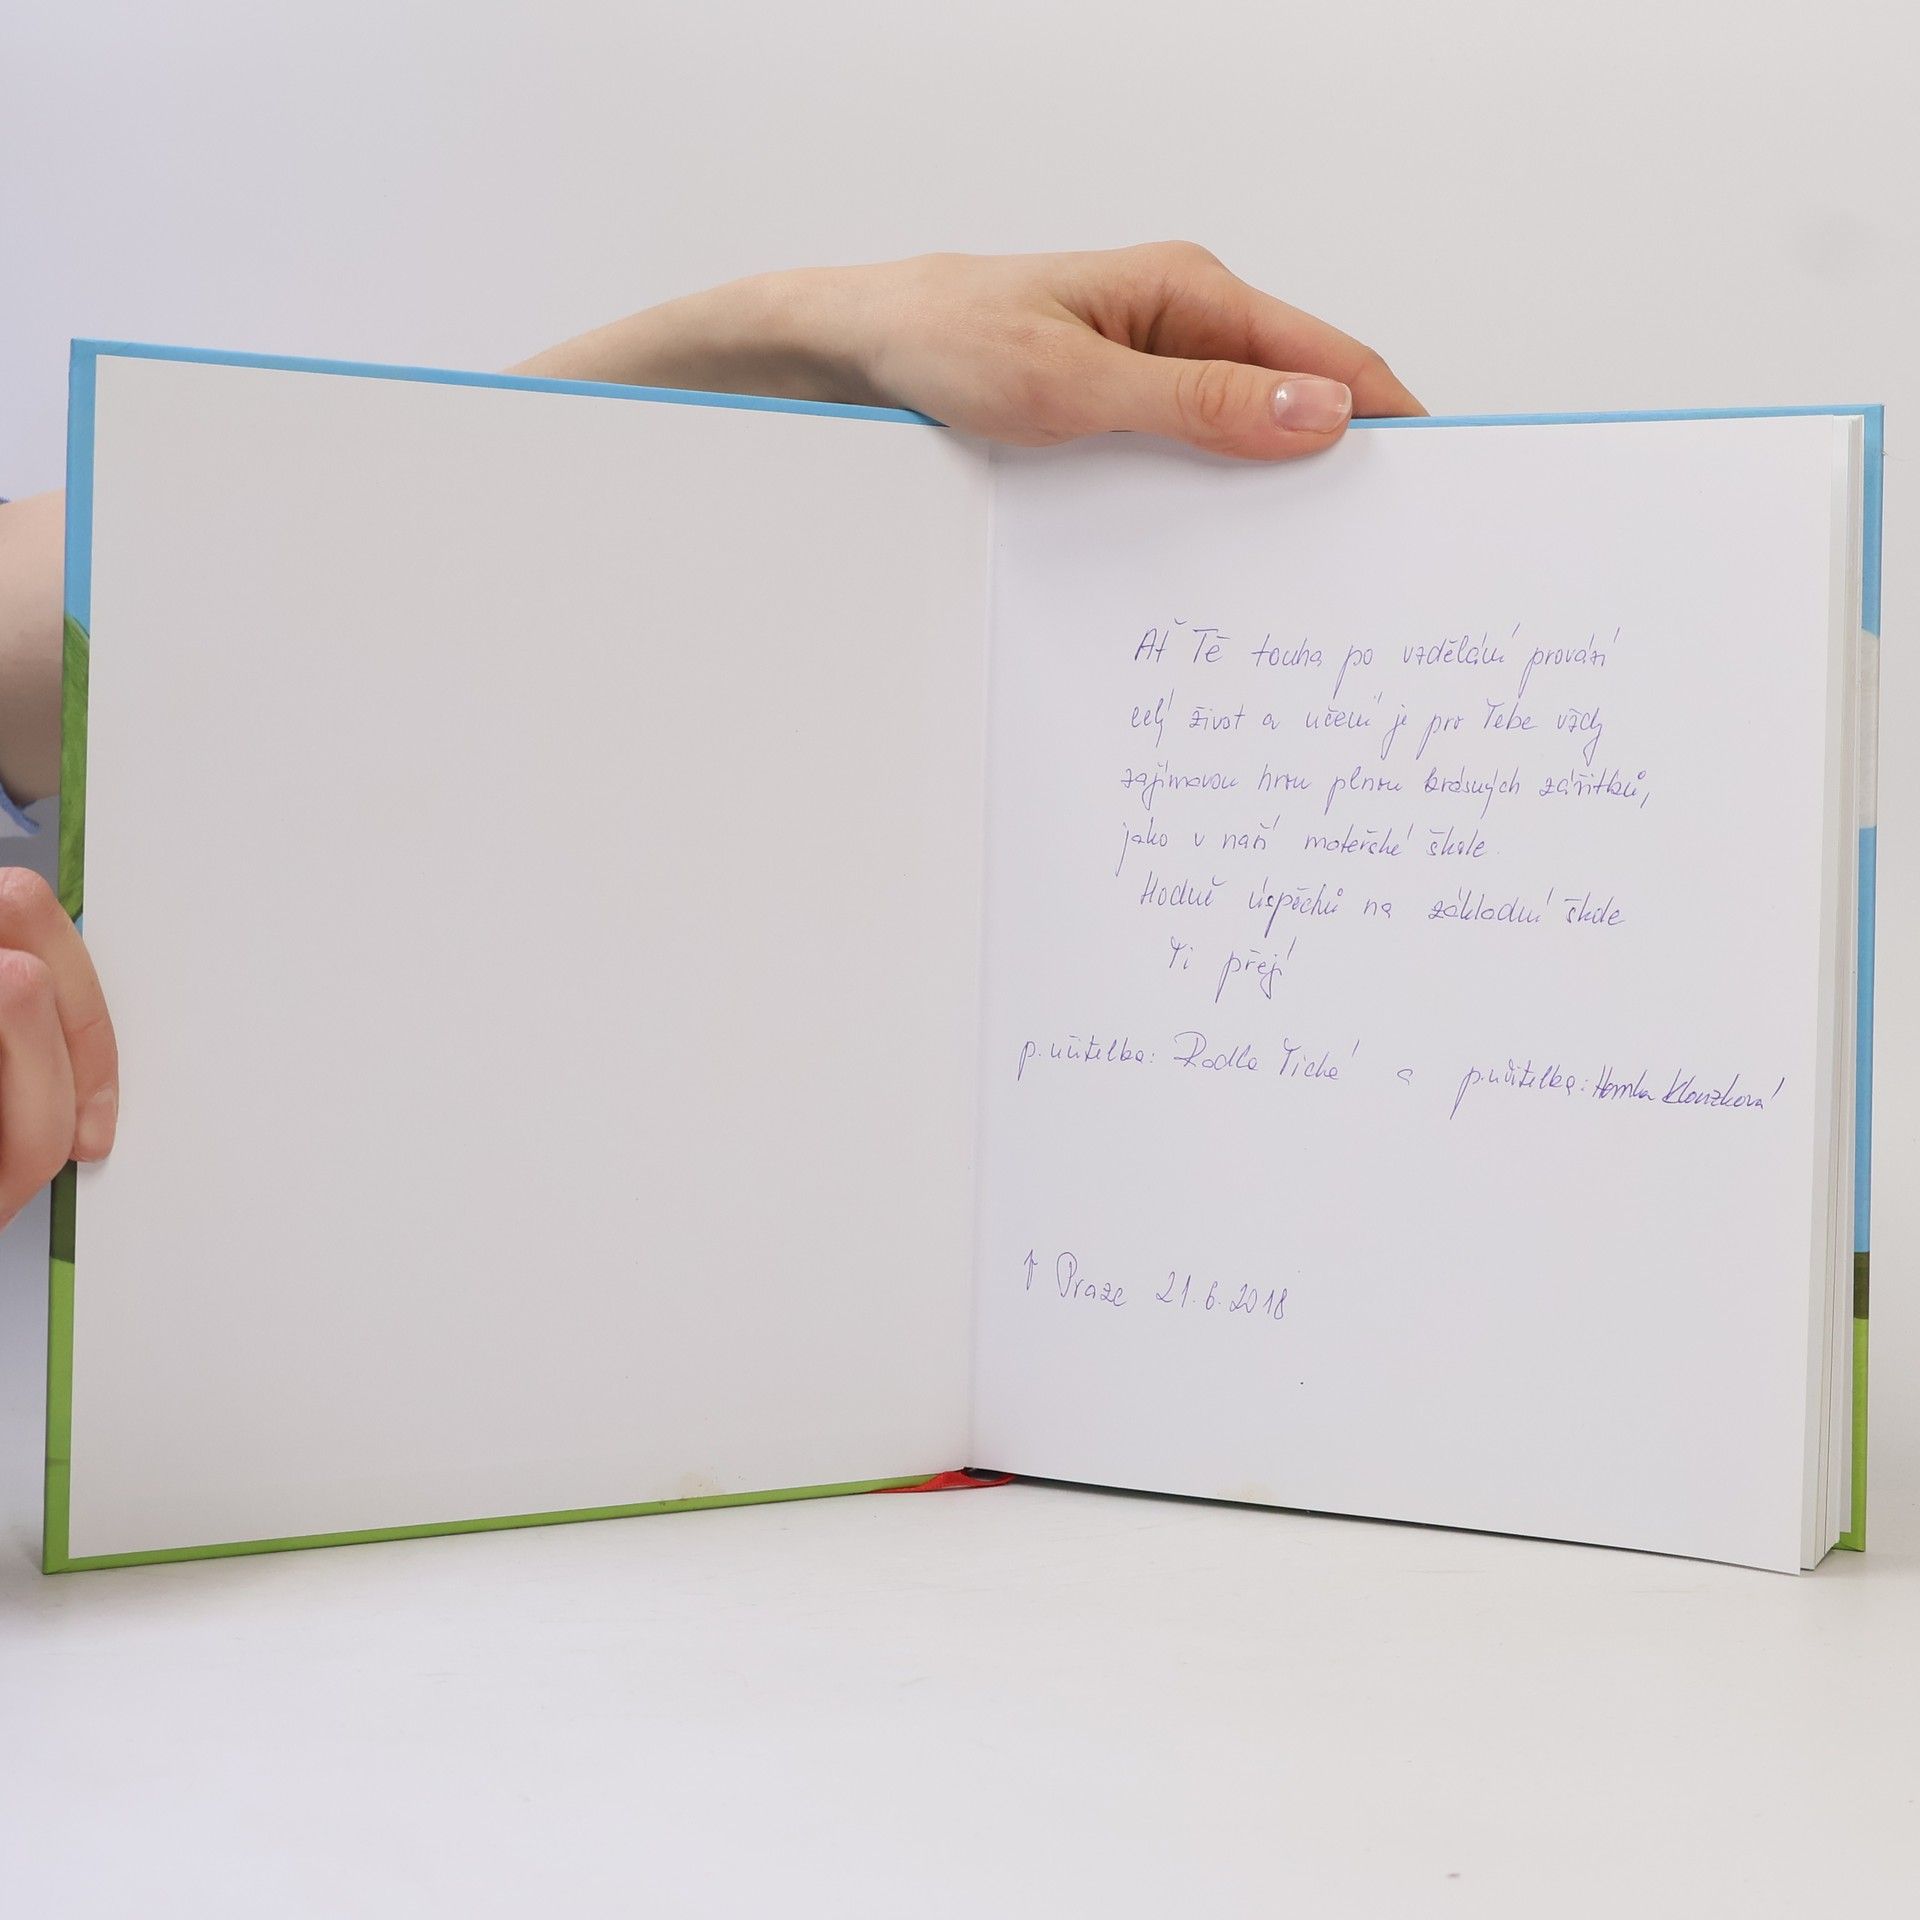 Ať Tě touha po vzdělání provází
celý život a učení je pro Tebe vždy
zajímavou hrou plnou krásných zážitků,
jako v naší mateřské škole.
Hodně úspěchů na základní škole
Ti přejí
p. učitelka: Radka Tichá a p. učitelka: Klouzková
V Praze 21.6.2018